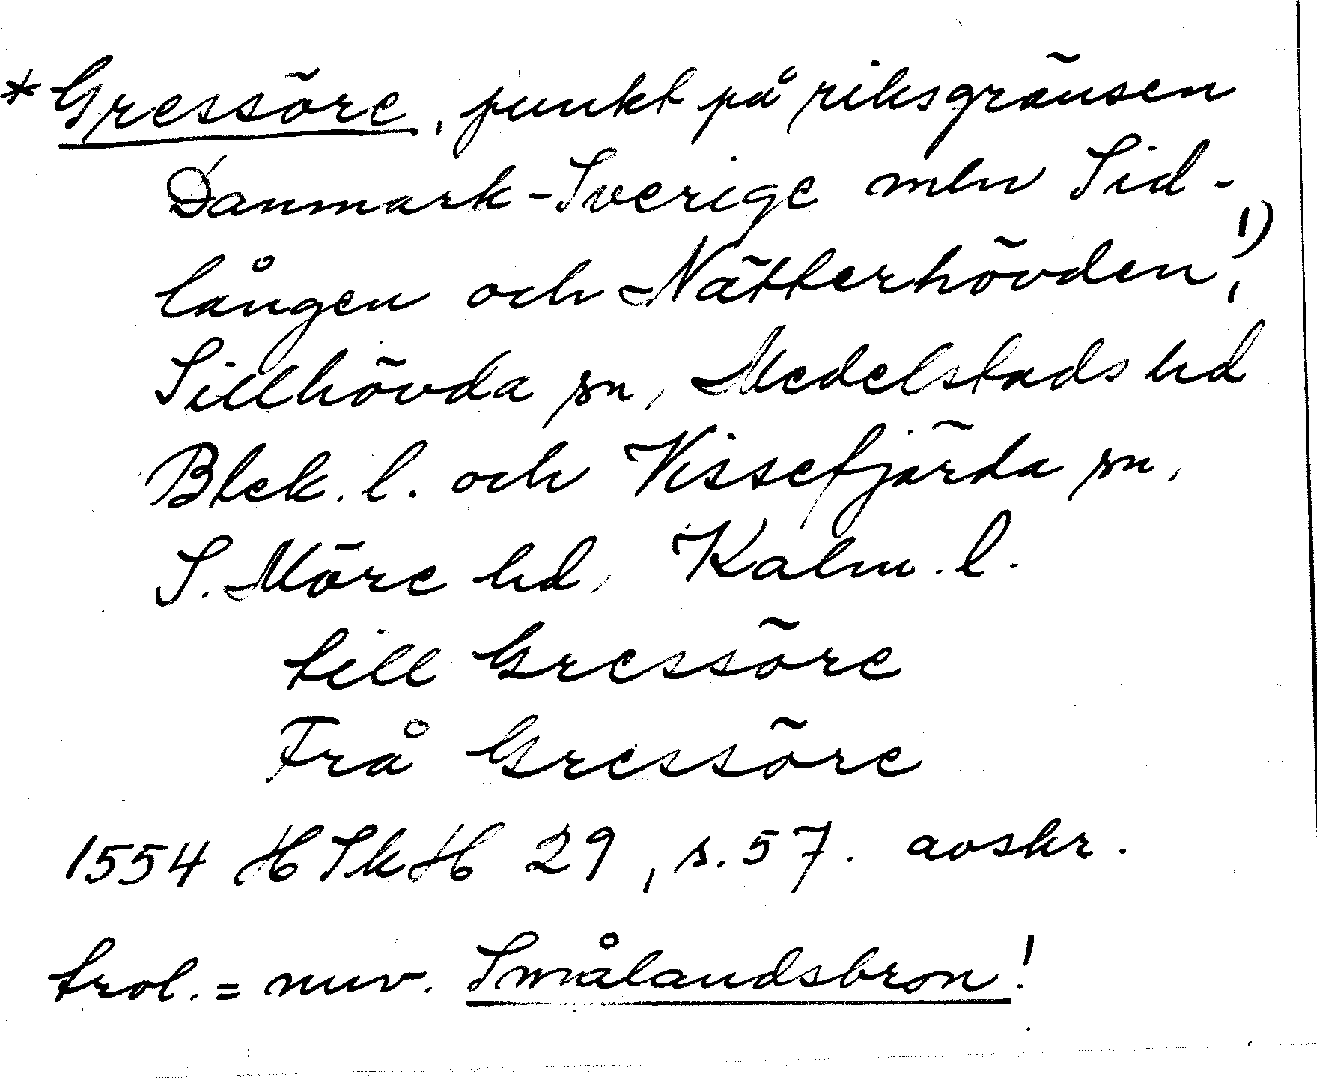 *Gressöre, punkt på riksgränsen
Danmark-Sverige mln Sid-
lången och Nätterhövden1),
Sillhövda sn, Medelstads hd
Blek. l. och Vissefjärda sn,
S. Möre hd, Kalm. l.
till Gressöre
Frå Gressöre
1554 HSkH 29, s. 57. avskr.
trol. = nuv. Smålandsbron!